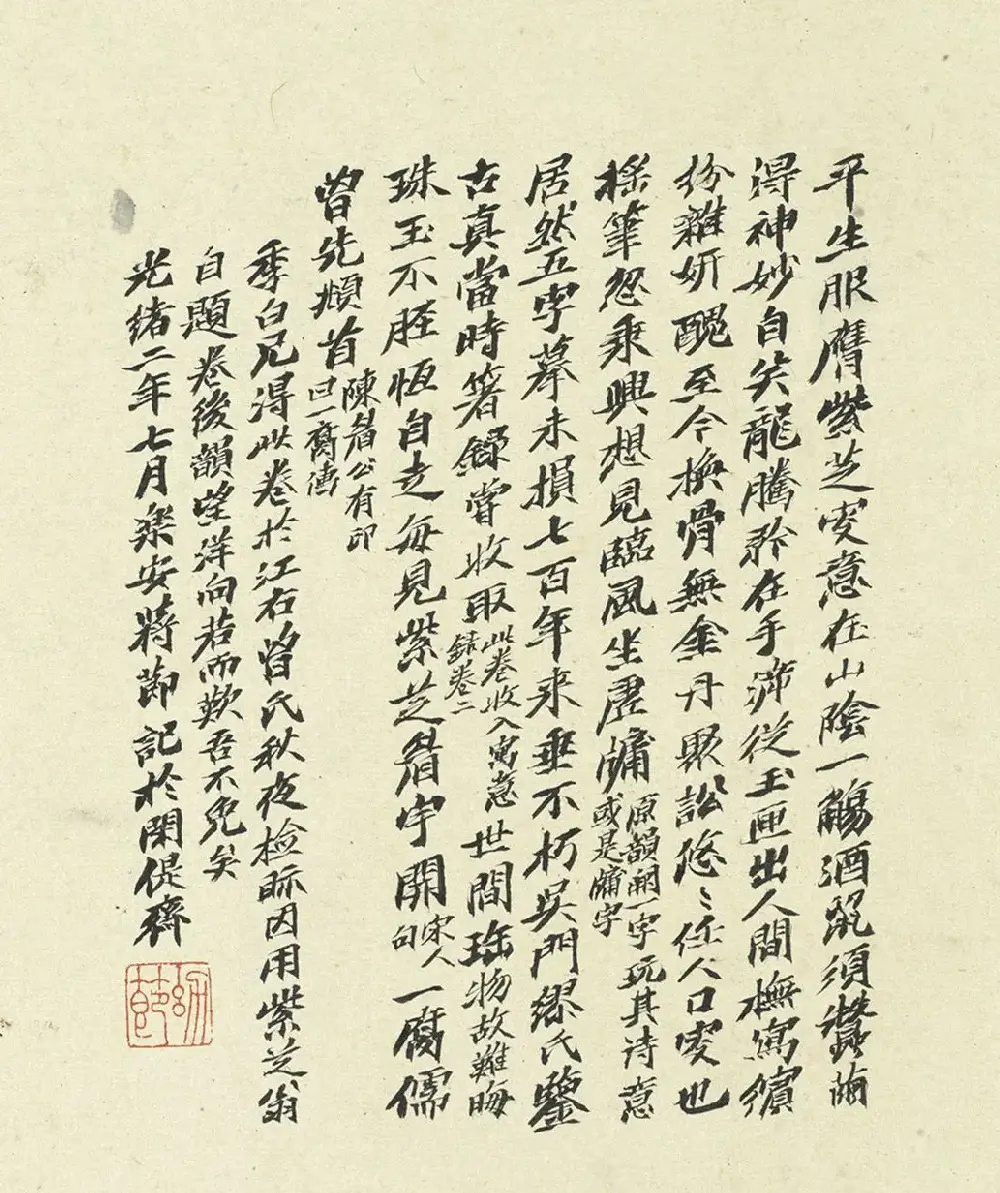 平生服膺紫芝叟意在山陰一觴酒鼠須蠶繭
得神妙自矣龍騰矜在手從玉匣出人間橅寫繽
紛雜妍醜至今換骨無金丹聚訟悠〻任人口叟也
搖筆忽乘興想見臨風坐虛牖原韻闕一字或是牖字玩其诗意
居然五字摹未損七百年来垂不朽吳門繆氏鑒
古真當時箸錄嘗收取此卷收入寓意録卷二世間珎物故難晦
珠玉不脛恆自走每見紫芝眉宇開宋人句一腐儒
曾先頫首陳眉公有印曰一腐儒
季白兄得此卷於江右曾氏秋夜檢眎因用紫芝翁
自題卷後韻望洋向若而歎吾不免矣
光緒二年七月樂安蔣節記於閑偍齋